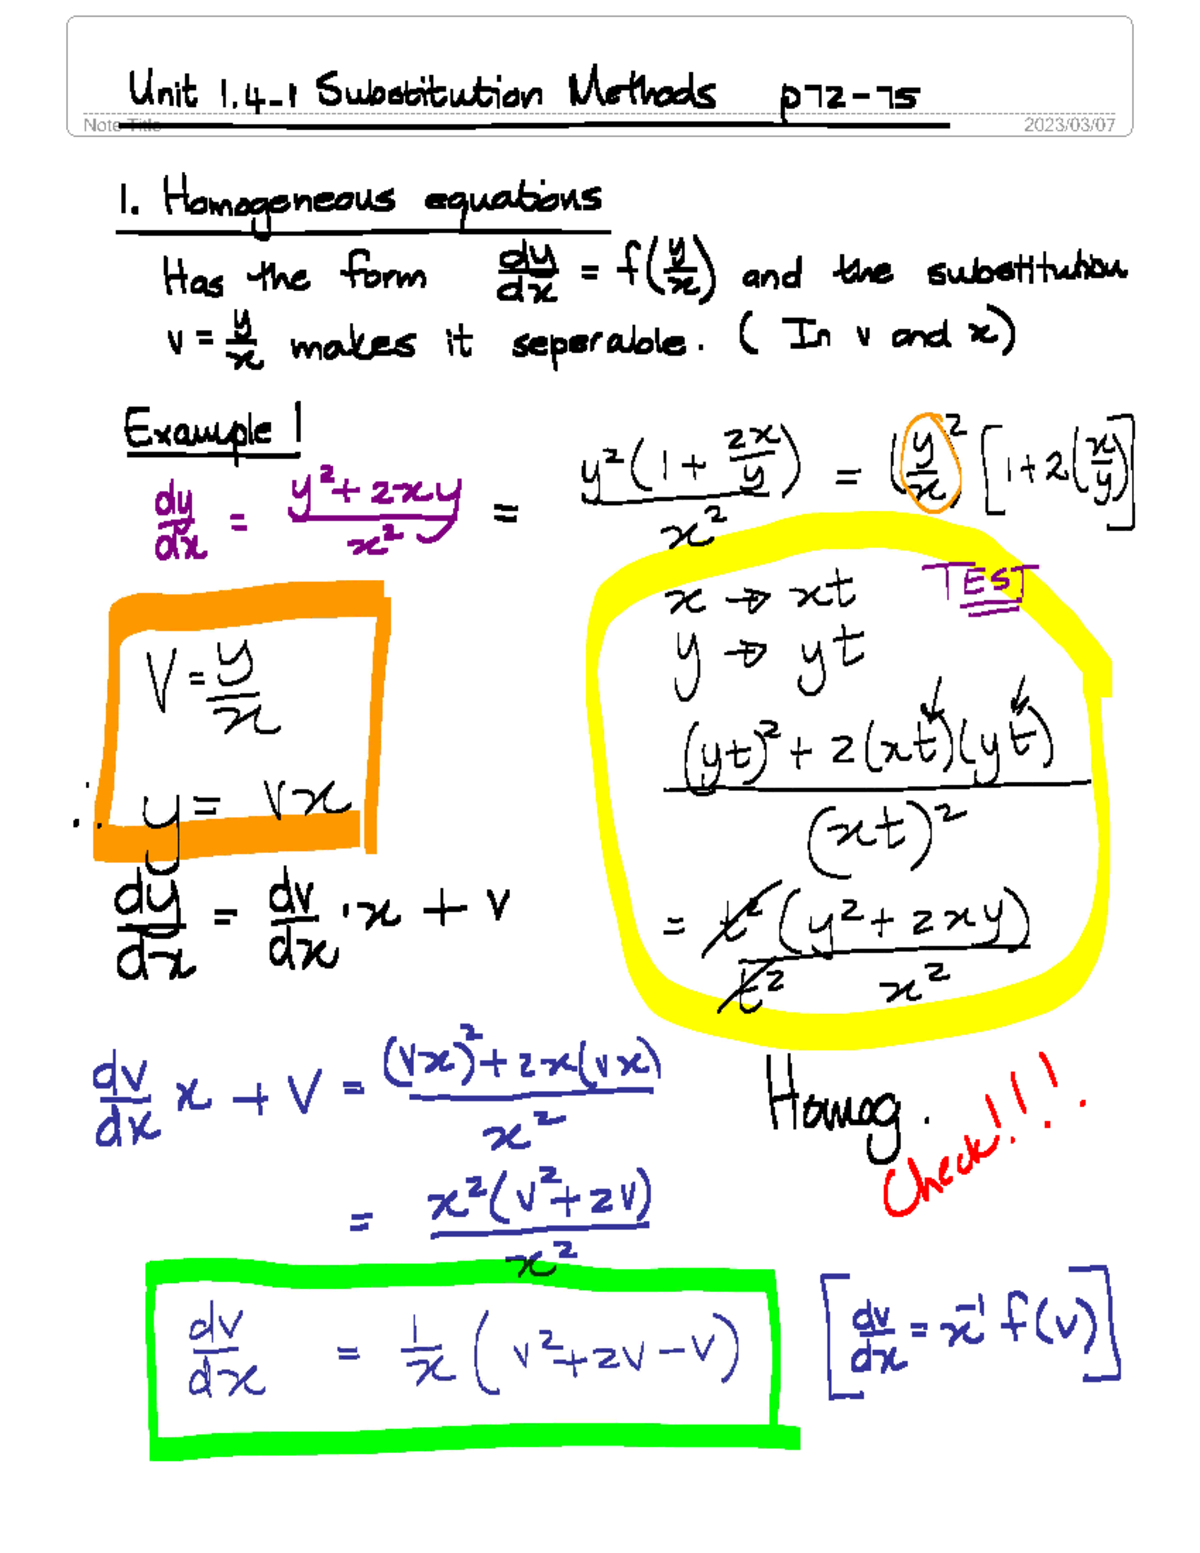 Unit 1.4-1 Substitution Methods p72-75
Note Title 2023/03/07
1. Homogeneous equations
Has the form dy/dx = f(y/x) and the substitution
v = y/x makes it seperable. ( In v and x)
Example 1
dy/dx = (y² + 2xy)/x² = y²(1 + 2x/y)/x² = (y/x)² [1 + 2(x/y)]
TEST
x → xt
y → yt
((yt)² + 2(xt)(yt))/(xt)²
= t²(y² + 2xy)/(t² x²)
Homog.
Check!!!
V = y/x
∴ y = vx
dy/dx = dv/dx · x + v
dv/dx x + V = ((vx)² + 2x(vx))/x²
= x²(v² + 2v)/x²
dv/dx = 1/x (v² + 2v - v) [dv/dx = x⁻¹ f(v)]